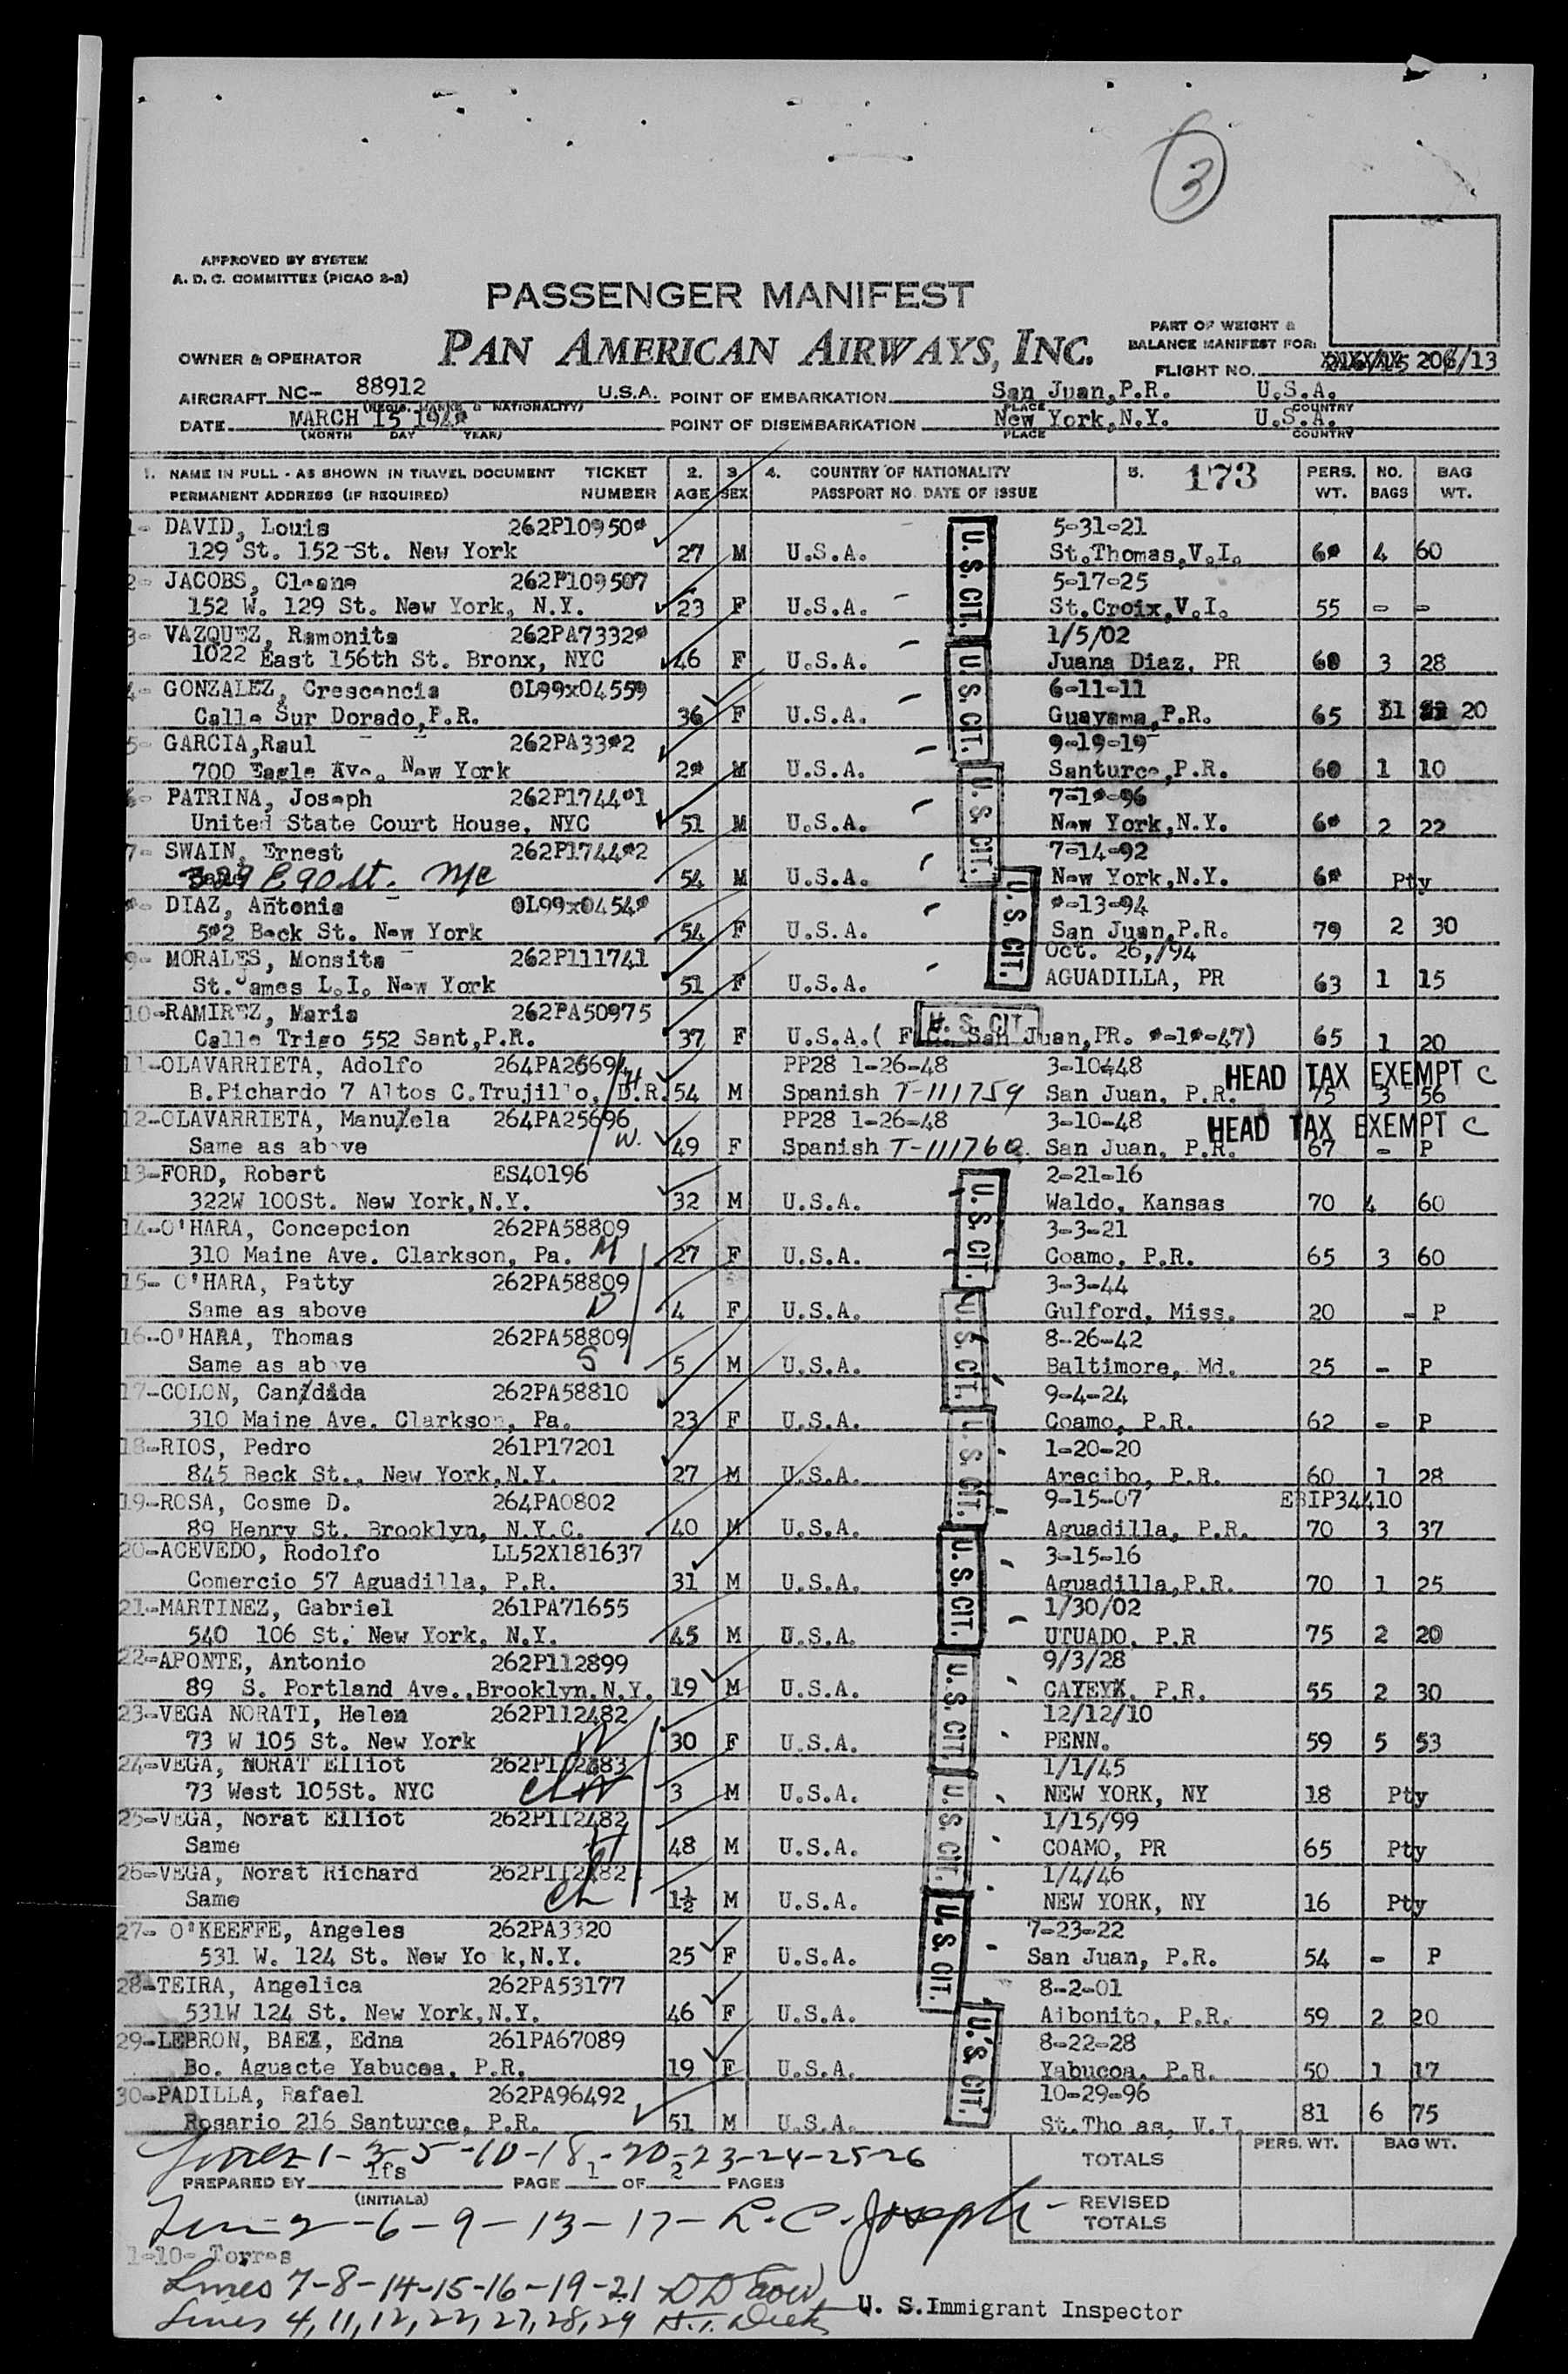 3
APPROVED BY SYSTEM
A. D. C. COMMITTEE (PICAO 2-2)
PASSENGER MANIFEST
PAN AMERICAN AIRWAYS, INC.
PART OF WEIGHT &
BALANCE MANIFEST FOR:
OWNER & OPERATOR
FLIGHT NO. 206/13
AIRCRAFT NC- 88912 U.S.A. POINT OF EMBARKATION San Juan,P.R. U.S.A.
(REGIS. MARKS & NATIONALITY) PLACE COUNTRY
DATE MARCH 15 194 POINT OF DISEMBARKATION New York,N.Y. U.S.A.
(MONTH DAY YEAR) PLACE COUNTRY
1. NAME IN FULL - AS SHOWN IN TRAVEL DOCUMENT TICKET 2. 3. 4. COUNTRY OF NATIONALITY 5. 173 PERS. NO. BAG
PERMANENT ADDRESS (IF REQUIRED) NUMBER AGE SEX PASSPORT NO. DATE OF ISSUE WT. BAGS WT.
1- DAVID, Louis 262P10950 5-31-21
129 St. 152 St. New York 27 M U.S.A. St.Thomas,V.I. 4 60
2- JACOBS, Cleane 262P109507 5-17-25
152 W. 129 St. New York, N.Y. 23 F U.S.A. St.Croix,V.I. 55 - -
3- VAZQUEZ, Ramonita 262PA7332 1/5/02
1022 East 156th St. Bronx, NYC 46 F U.S.A. Juana Diaz, PR 60 3 28
4- GONZALEZ, Crescencia 0L99x04559 6-11-11
Calle Sur Dorado,P.R. 36 F U.S.A. Guayama,P.R. 65 1 20
5- GARCIA,Raul 262PA33 2 9-19-19
700 Eagle Ave. New York 2 M U.S.A. Santurce,P.R. 60 1 10
6- PATRINA, Joseph 262P1744 1 7-1 -96
United State Court House, NYC 51 M U.S.A. New York,N.Y. 2 22
7- SWAIN, Ernest 262P1744 2 7-14-92
329 E 90 St. NYC 54 M U.S.A. New York,N.Y. Pty
DIAZ, Antonia 0L99x0454 -13-94
5 2 Beck St. New York 54 F U.S.A. San Juan,P.R. 79 2 30
9- MORALES, Monsita 262P111741 Oct. 26,/94
St. James L.I. New York 51 F U.S.A. AGUADILLA, PR 63 1 15
10-RAMIREZ, Maria 262PA50975
Calle Trigo 552 Sant,P.R. 37 F U.S.A.( San Juan,PR. -1 -47) 65 1 20
11-OLAVARRIETA, Adolfo 264PA2569 H PP28 1-26-48 3-10-48 HEAD TAX EXEMPT C
B.Pichardo 7 Altos C.Trujillo, D.R. 54 M Spanish T-111759 San Juan, P.R. 75 3 56
12-OLAVARRIETA, Manuela 264PA25696 PP28 1-26-48 3-10-48 HEAD TAX EXEMPT C
Same as above W. 49 F Spanish T-111760 San Juan, P.R. 67 - P
13-FORD, Robert ES40196 2-21-16
322W 100St. New York,N.Y. 32 M U.S.A. Waldo, Kansas 70 4 60
14-O'HARA, Concepcion 262PA58809 3-3-21
310 Maine Ave. Clarkson, Pa. M 27 F U.S.A. Coamo, P.R. 65 3 60
15- O'HARA, Patty 262PA58809 3-3-44
Same as above D 4 F U.S.A. Gulford, Miss. 20 - P
16-O'HARA, Thomas 262PA58809 8-26-42
Same as above S 5 M U.S.A. Baltimore, Md. 25 - P
17-COLON, Candida 262PA58810 9-4-24
310 Maine Ave. Clarkson, Pa. 23 F U.S.A. Coamo, P.R. 62 - P
18-RIOS, Pedro 261P17201 1-20-20
845 Beck St., New York,N.Y. 27 M U.S.A. Arecibo, P.R. 60 1 28
19-ROSA, Cosme D. 264PA0802 9-15-07 EBIP34410
89 Henry St. Brooklyn, N.Y.C. 40 M U.S.A. Aguadilla, P.R. 70 3 37
20-ACEVEDO, Rodolfo LL52X181637 3-15-16
Comercio 57 Aguadilla, P.R. 31 M U.S.A. Aguadilla,P.R. 70 1 25
21-MARTINEZ, Gabriel 261PA71655 1/30/02
540 106 St. New York, N.Y. 45 M U.S.A. UTUADO, P.R 75 2 20
22-APONTE, Antonio 262P112899 9/3/28
89 S. Portland Ave.,Brooklyn,N.Y. 19 M U.S.A. CAYEY, P.R. 55 2 30
23-VEGA NORATI, Helen 262P112482 12/12/10
73 W 105 St. New York W 30 F U.S.A. PENN. 59 5 53
24-VEGA, NORAT Elliot 262P112483 1/1/45
73 West 105St. NYC 3 M U.S.A. NEW YORK, NY 18 Pty
25-VEGA, Norat Elliot 262P112482 1/15/99
Same H 48 M U.S.A. COAMO, PR 65 Pty
26-VEGA, Norat Richard 262P112482 1/4/46
Same Ch 1½ M U.S.A. NEW YORK, NY 16 Pty
27- O'KEEFFE, Angeles 262PA3320 7-23-22
531 W. 124 St. New Yo k,N.Y. 25 F U.S.A. San Juan, P.R. 54 - P
28-TEIRA, Angelica 262PA53177 8-2-01
531W 124 St. New York,N.Y. 46 F U.S.A. Aibonito, P.R. 59 2 20
29-LEBRON, BAEZ, Edna 261PA67089 8-22-28
Bo. Aguacte Yabucoa, P.R. 19 F U.S.A. Yabucoa, P.R. 50 1 17
30-PADILLA, Rafael 262PA96492 10-29-96
Rosario 216 Santurce, P.R. 51 M U.S.A. St.Tho as, V.I. 81 6 75
U. S. CIT.
U. S. CIT.
U. S. CIT.
U. S. CIT.
U. S. CIT.
U. S. CIT.
U. S. CIT.
U. S. CIT.
U. S. CIT.
U. S. CIT.
U. S. CIT.
U. S. CIT.
U. S. CIT.
Lines 1-3-5-10-18-20-23-24-25-26
PREPARED BY lfs PAGE 1 OF 2 PAGES
(INITIALS)
TOTALS PERS. WT. BAG WT.
REVISED
TOTALS
Lines 2-6-9-13-17- L. C. Joseph
1-10- Torres
Lines 7-8-14-15-16-19-21
Lines 4,11,12,22,27,28,29
U. S. Immigrant Inspector